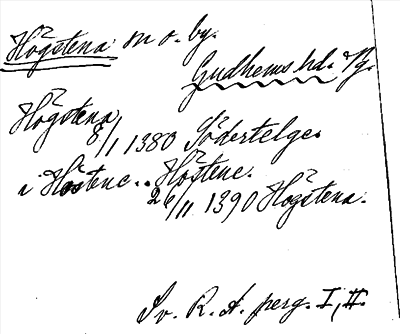 Högstena sn o. by.
Gudhems hd. Vg.
Högstena
8/1 1380 Södertelge.
i Höstene.. Höstene.
2/11 1390 Högstena.
Sv. R. A. perg. I, II.